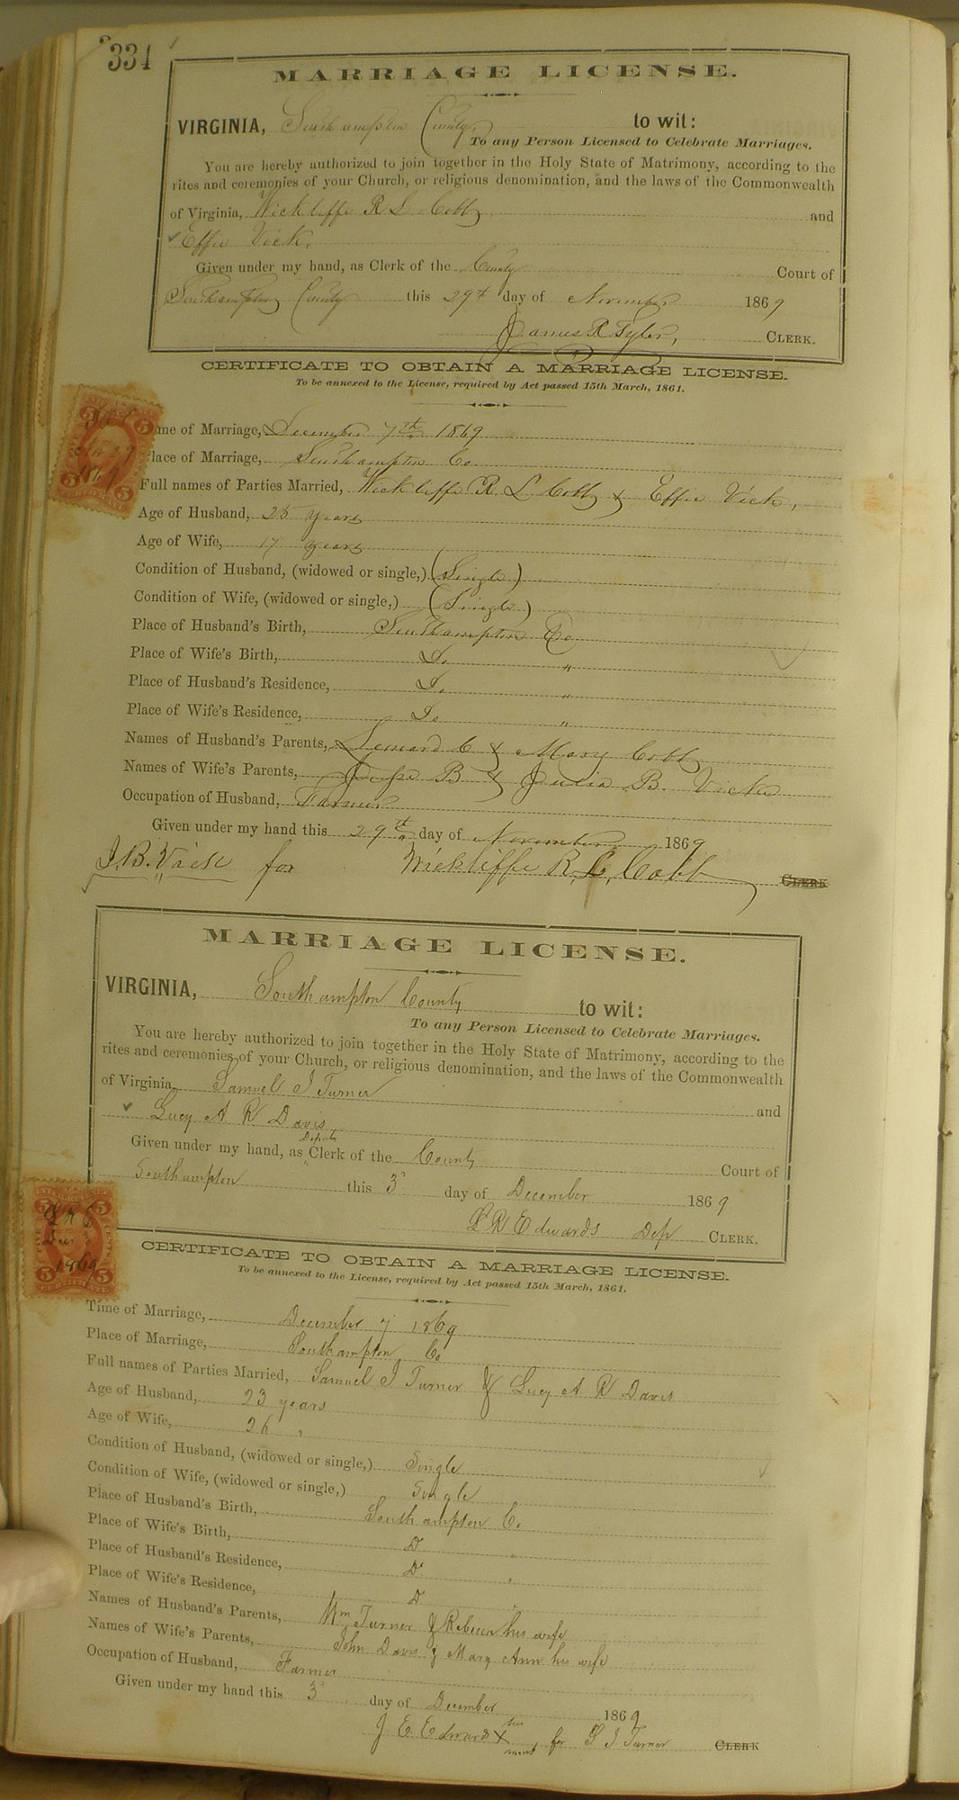 334
MARRIAGE LICENSE.
VIRGINIA, Southampton County, to wit:
To any Person Licensed to Celebrate Marriages.
You are hereby authorized to join together in the Holy State of Matrimony, according to the
rites and ceremonies of your Church, or religious denomination, and the laws of the Commonwealth
of Virginia, Wickliffe R L Cobb and
Effie Vick.
Given under my hand, as Clerk of the County Court of
Southampton County this 29th day of November 1869
James R Tyler, CLERK.
CERTIFICATE TO OBTAIN A MARRIAGE LICENSE.
To be annexed to the License, required by Act passed 15th March, 1861.
me of Marriage, December 7th 1869
lace of Marriage, Southampton Co
Full names of Parties Married, Wickliffe R. L Cobb & Effie Vick,
Age of Husband, 25 years
Age of Wife, 17 years
Condition of Husband, (widowed or single,) (Single)
Condition of Wife, (widowed or single,) (Single)
Place of Husband's Birth, Southampton Co
Place of Wife's Birth, Do "
Place of Husband's Residence, Do "
Place of Wife's Residence, Do "
Names of Husband's Parents, Lemuard C & Mary Cobb
Names of Wife's Parents, B & Julia B. Vick
Occupation of Husband, Farmer
Given under my hand this 29th day of November 1869
J. B. Vick for Wickliffe R. L. Cobb CLERK
MARRIAGE LICENSE.
VIRGINIA, Southampton County to wit:
To any Person Licensed to Celebrate Marriages.
You are hereby authorized to join together in the Holy State of Matrimony, according to the
rites and ceremonies of your Church, or religious denomination, and the laws of the Commonwealth
of Virginia, Samuel J Turner and
Lucy A R Davis
Deputy
Given under my hand, as Clerk of the County Court of
Southampton this 3d day of December 1869
L R Edwards Dep CLERK.
CERTIFICATE TO OBTAIN A MARRIAGE LICENSE.
To be annexed to the License, required by Act passed 15th March, 1861.
Time of Marriage, December 7 1869
Place of Marriage, Southampton Co
Full names of Parties Married, Samuel J Turner & Lucy A R Davis
Age of Husband, 23 years
Age of Wife, 26 "
Condition of Husband, (widowed or single,) Single
Condition of Wife, (widowed or single,) Single
Place of Husband's Birth, Southampton Co.
Place of Wife's Birth, Do "
Place of Husband's Residence, Do "
Place of Wife's Residence, Do
Names of Husband's Parents, Wm Turner & Rebecca his wife
Names of Wife's Parents, John Davis & Mary Ann his wife
Occupation of Husband, Farmer
Given under my hand this 3d day of December 1869
J E Edwards X his mark for S J Turner CLERK